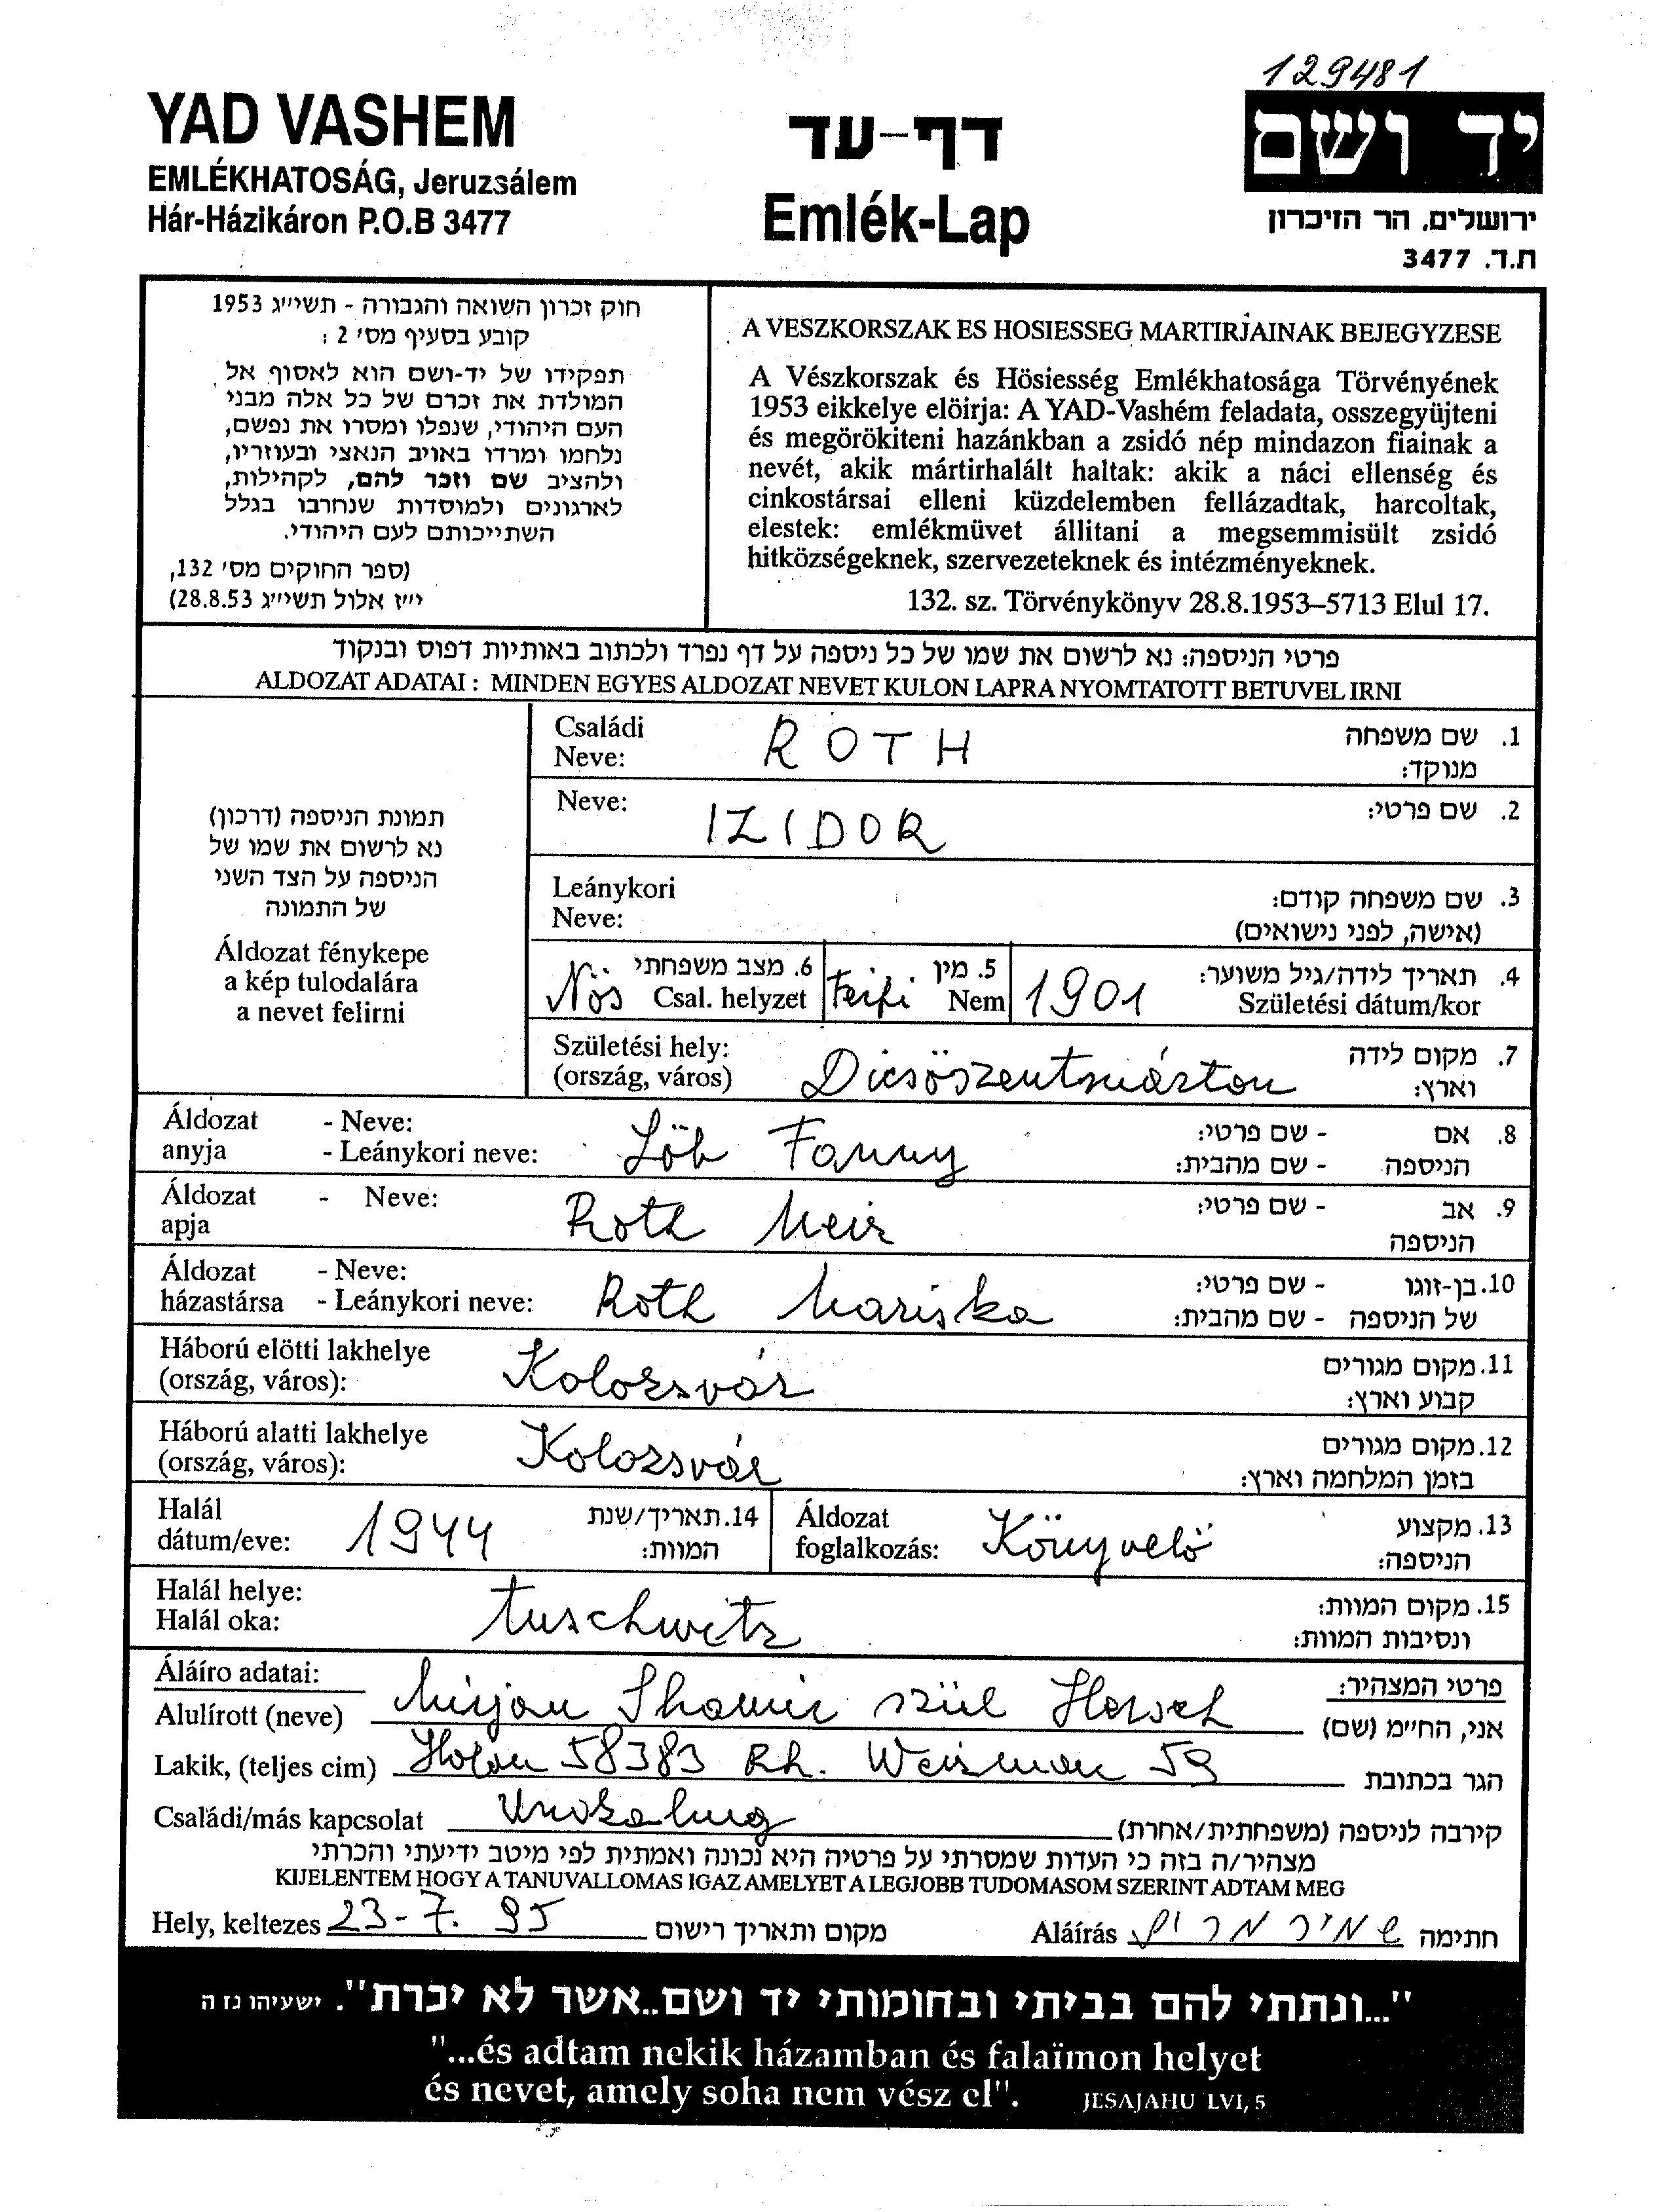 129481
YAD VASHEM
EMLÉKHATOSÁG, Jeruzsálem
Hár-Házikáron P.O.B 3477
דף-עד
Emlék-Lap
יד ושם
ירושלים, הר הזיכרון
ת.ד. 3477
חוק זכרון השואה והגבורה - תשי״ג 1953
קובע בסעיף מס׳ 2 :
תפקידו של יד-ושם הוא לאסוף אל
המולדת את זכרם של כל אלה מבני
העם היהודי, שנפלו ומסרו את נפשם,
נלחמו ומרדו באויב הנאצי ובעוזריו,
ולהציב שם וזכר להם, לקהילות,
לארגונים ולמוסדות שנחרבו בגלל
השתייכותם לעם היהודי.
(ספר החוקים מס׳ 132,
י״ז אלול תשי״ג 28.8.53)
A VESZKORSZAK ES HOSIESSEG MARTIRJAINAK BEJEGYZESE
A Vészkorszak és Hösiesség Emlékhatosága Törvényének
1953 eikkelye elöirja: A YAD-Vashém feladata, osszegyüjteni
és megörökiteni hazánkban a zsidó nép mindazon fiainak a
nevét, akik mártirhalált haltak: akik a náci ellenség és
cinkostársai elleni küzdelemben fellázadtak, harcoltak,
elestek: emlékmüvet állitani a megsemmisült zsidó
hitközségeknek, szervezeteknek és intézményeknek.
132. sz. Törvénykönyv 28.8.1953–5713 Elul 17.
פרטי הניספה: נא לרשום את שמו של כל ניספה על דף נפרד ולכתוב באותיות דפוס ובנקוד
ALDOZAT ADATAI : MINDEN EGYES ALDOZAT NEVET KULON LAPRA NYOMTATOTT BETUVEL IRNI
תמונת הניספה (דרכון)
נא לרשום את שמו של
הניספה על הצד השני
של התמונה
Áldozat fénykepe
a kép tulodalára
a nevet felirni
Családi
Neve:
ROTH
1. שם משפחה
מנוקד:
Neve:
IZIDOR
2. שם פרטי:
Leánykori
Neve:
3. שם משפחה קודם:
(אישה, לפני נישואים)
Nös
6. מצב משפחתי
Csal. helyzet
Ferfi
5. מין
Nem
1901
4. תאריך לידה/גיל משוער:
Születési dátum/kor
Születési hely:
(ország, város)
Dicsöszentmárton
7. מקום לידה
וארץ:
Áldozat - Neve:
anyja - Leánykori neve:
Löb Fanny
8. אם - שם פרטי:
הניספה - שם מהבית:
Áldozat - Neve:
apja
Roth Meir
9. אב - שם פרטי:
הניספה
Áldozat - Neve:
házastársa - Leánykori neve:
Roth Mariska
10. בן-זוגו - שם פרטי:
של הניספה - שם מהבית:
Háború elötti lakhelye
(ország, város):
Kolozsvár
11. מקום מגורים
קבוע וארץ:
Háború alatti lakhelye
(ország, város):
Kolozsvár
12. מקום מגורים
בזמן המלחמה וארץ:
Halál
dátum/eve:
1944
14. תאריך/שנת
המוות:
Áldozat
foglalkozás:
Könyvelö
13. מקצוע
הניספה:
Halál helye:
Halál oka:
Auschwitz
15. מקום המוות:
ונסיבות המוות:
Áláíro adatai:
פרטי המצהיר:
Alulírott (neve) Mirjam Shamir szül Hersch אני, החי״מ (שם)
Lakik, (teljes cim) Holon 58383 Rh. Weizman 59 הגר בכתובת
Családi/más kapcsolat Unokahug קירבה לניספה (משפחתית/אחרת)
מצהיר/ה בזה כי העדות שמסרתי על פרטיה היא נכונה ואמתית לפי מיטב ידיעתי והכרתי
KIJELENTEM HOGY A TANUVALLOMAS IGAZ AMELYET A LEGJOBB TUDOMASOM SZERINT ADTAM MEG
Hely, keltezes 23-7. 95 מקום ותאריך רישום
Aláírás שמיר מרים חתימה
"...ונתתי להם בביתי ובחומותי יד ושם..אשר לא יכרת". ישעיהו נז ה
"...és adtam nekik házamban és falaïmon helyet
és nevet, amely soha nem vész el". JESAJAHU LVI, 5